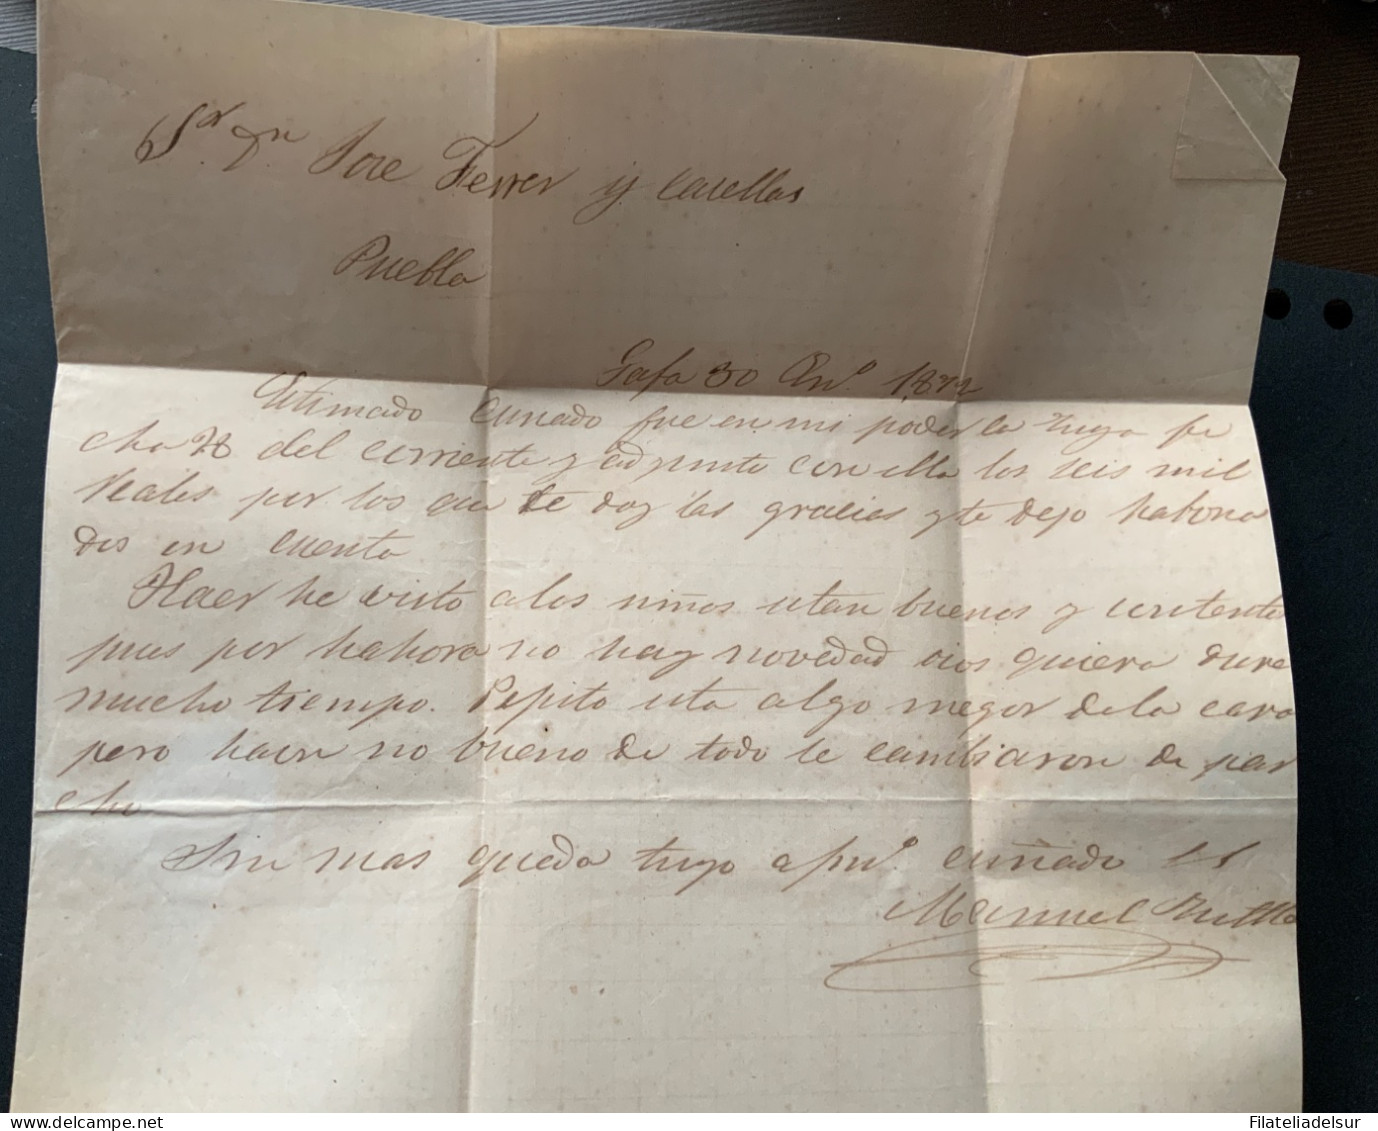 Sr Dn Jose Ferrer y Casellas
Puebla
30 Eno. 1872
Estimado cunado fue en mi poder la tuya fe
cha 28 del corriente y adjunto con ella los seis mil
Reales por los que te doy las gracias y te dejo habona
dos en cuenta
Haer he visto a los niños estan buenos y contentos
pues por hahora no hay novedad dios quiera dure
mucho tiempo. Pepito esta algo megor de la cara
pero haun no bueno de todo le cambiaron de par
che
Sin mas queda tuyo apmo. cuñado
Manuel
Filateliadelsur